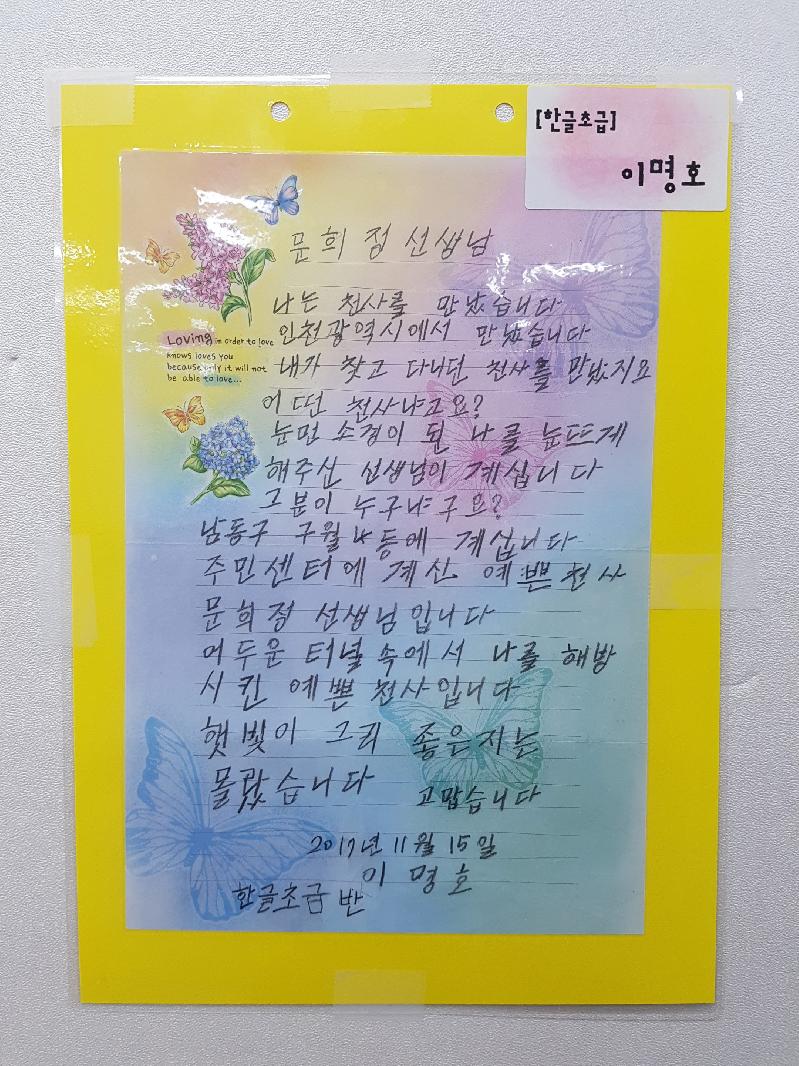 [한글초급]
이명호
문희정 선생님
나는 천사를 만났습니다
인천광역시에서 만났습니다
내가 찾고 다니던 천사를 만났지요
어떤 천사냐고요?
눈먼 소경이 된 나를 눈뜨게
해주신 선생님이 계십니다
그분이 누구냐구요?
남동구 구월4동에 계십니다
주민센터에 계신 예쁜천사
문희정 선생님입니다
어두운 터널속에서 나를 해방
시킨 예쁜 천사입니다
햇빛이 그리 좋은지는
몰랐습니다 고맙습니다
2017년 11월 15일
이 명 호
한글초급 반
Loving in order to love
knows loves you
because only it will not
be able to love...